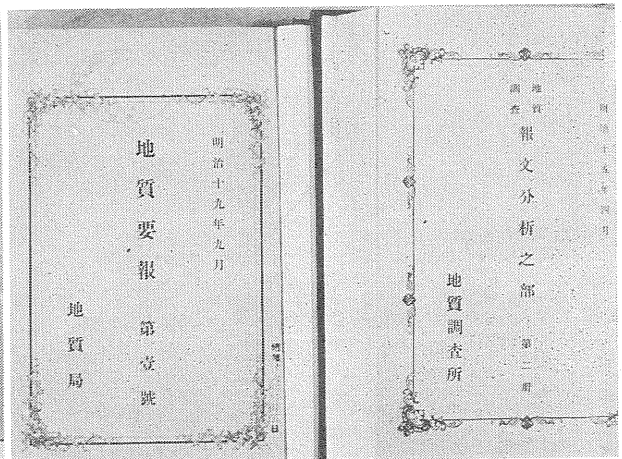 明治十五年四月
地質調査
報文分析之部 第二册
地質調査所
明治十九年九月
地質要報 第壹號
地質局